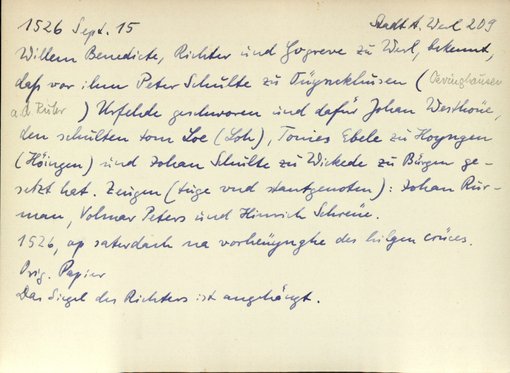 1526 Sept. 15 Stadt A. Werl 209
Willem Benedicte, Richter und Gogreve zu Werl, bekennt,
daß vor ihm Peter Schulte zu (Oevinghausen
a.d. Ruhr) Urfehde geschworen und dafür Johan Westhoue,
den schulten tom Loe (Loh), Tonies Ebele zu Hoyngen
(Höingen) und Johan Schulte zu Wickede zu Bürgen ge-
setzt hat. Zeugen (tuge und stantgenoten): Johan Rur-
man, Volmar Peters und Hinrich Schreue.
1526, op saterdach na vorheuynghe des hilgen crüces.
Orig. Papier
Das Siegel des Richters ist angehängt.